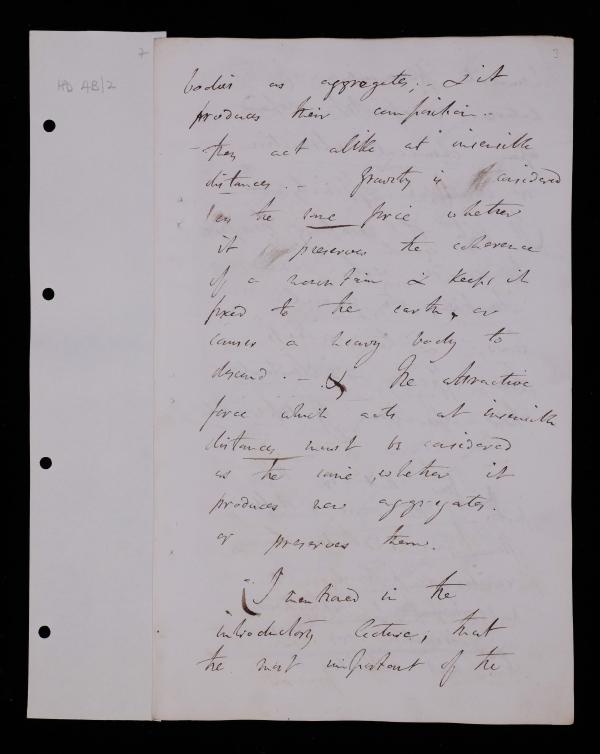 7
3
HD AB/2
bodies as aggregates; - & it
produces their composition. -
- they act alike at insensible
distances. - Gravity is considered
as the same force whether
it preserves the coherence
of a mountain & keeps it
fixed to the earth, or
causes a heavy body to
descend. - & the attractive
force which acts at insensible
distances must be considered
as the same, whether it
produces new aggregates.
or preserves them.
"I mentioned in the
introductory lecture, that
the most important of the